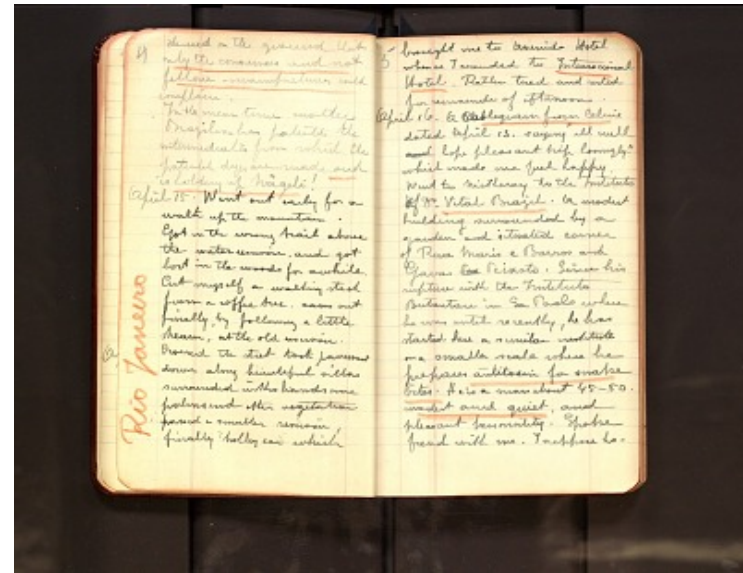 4
denied on the ground that
only the consumers and not
fellow-manufacturers could
complain.
In the mean time another
Brazilian has patents the
intermediates from which the
patented drugs are made and
is holding up Nägeli!
April 15. Went out early for a
walk up the mountain.
Got on the wrong trail above
the water and got
lost in the woods for awhile.
Cut myself a walking stick
from a coffee tree. came out
finally, by following a little
stream, at the old reservoir.
Crossed the street took
down along beautiful villas
surrounded with handsome
palms and other vegetation
passed a smaller reservoir,
finally trolley car which
Rio Janeiro
5
brought me to Hotel
whence I wended to International
Hotel. Rather tired and rested
for remainder of afternoon.
April 16. A Cablegram from Celine
dated April 15. saying "all well
hope pleasant trip lovingly"
which made me feel happy.
Went to Nictheroy to the Instituto
of Dr Vital Brazil. A modest
building surrounded by a
garden and situated corner
of Rua Mariz e Barros and
Gavas Peixoto. Since his
rupture with the Instituto
Butantan in Sao Paolo where
he was until recently, he has
started here a similar institute
on a smaller scale where he
prepares antitoxin for snake
bites. He is a man about 45-50.
modest and quiet, and
pleasant personality. Spoke
french with me. I suppose he